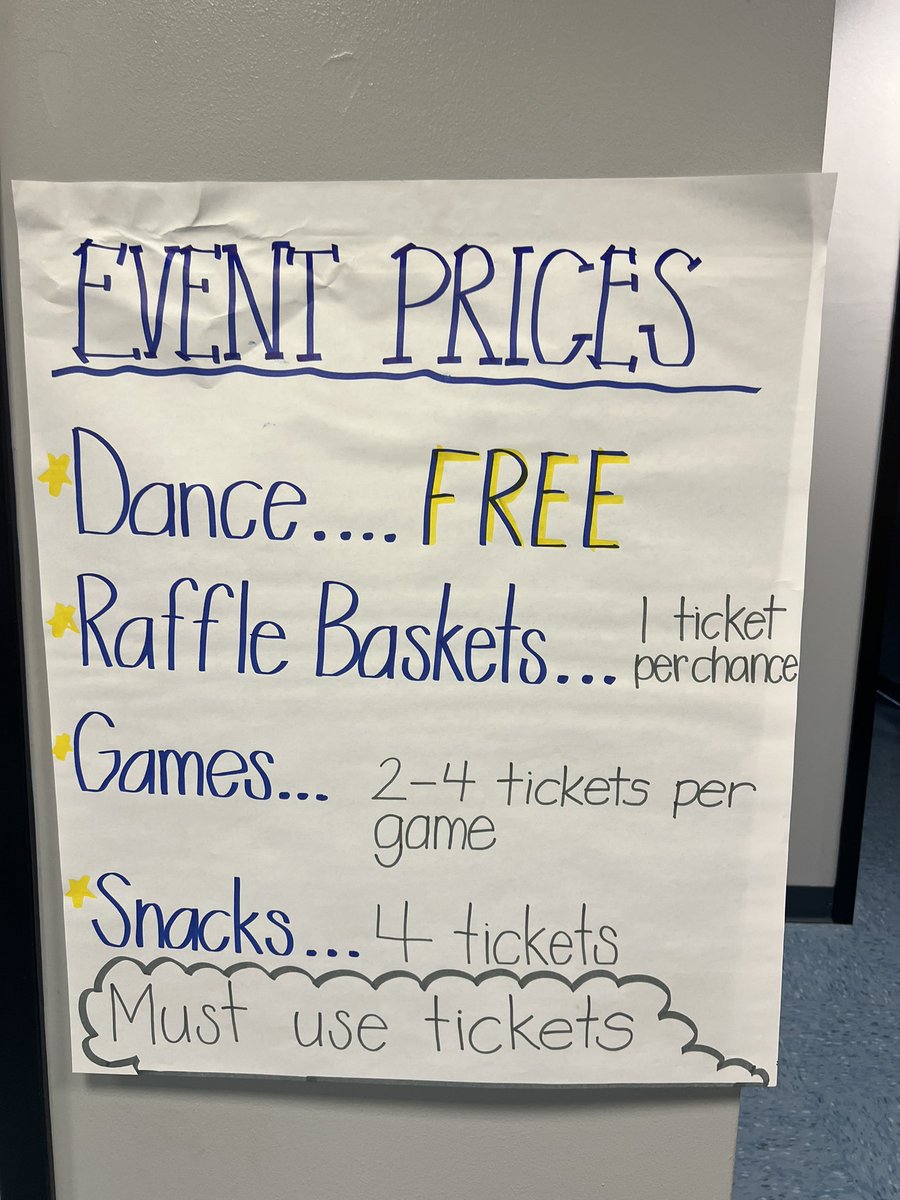 EVENT PRICES
Dance.... FREE
Raffle Baskets... 1 ticket
per chance
Games... 2-4 tickets per
game
Snacks... 4 tickets
Must use tickets